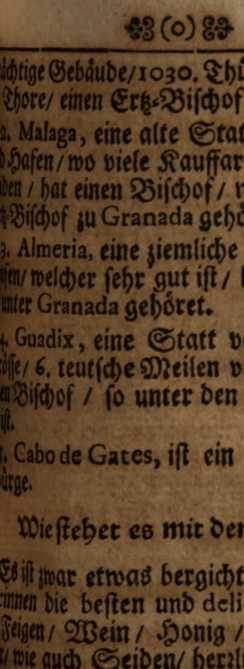 (o)
ächtige Gebäude/1030. Thü
Thore/ einen Ertz-Bischof
2. Malaga, eine alte Stat
Hafen/ wo viele Kauffar
den / hat einen Bischof/
tz-Bischof zu Granada gehö
3. Almeria, eine ziemliche
afen/ welcher sehr gut ist /
unter Granada gehöret.
4. Guadix, eine Statt v
rösse/ 6. teutsche Meilen v
en Bischof / so unter den
ist.
5. Cabo de Gates, ist ein
ürge.
Wie stehet es mit den
Es ist zwar etwas bergicht
rinnen die besten und deli
Feigen/ Wein / Honig /
/ wie auch Seiden/ herzl